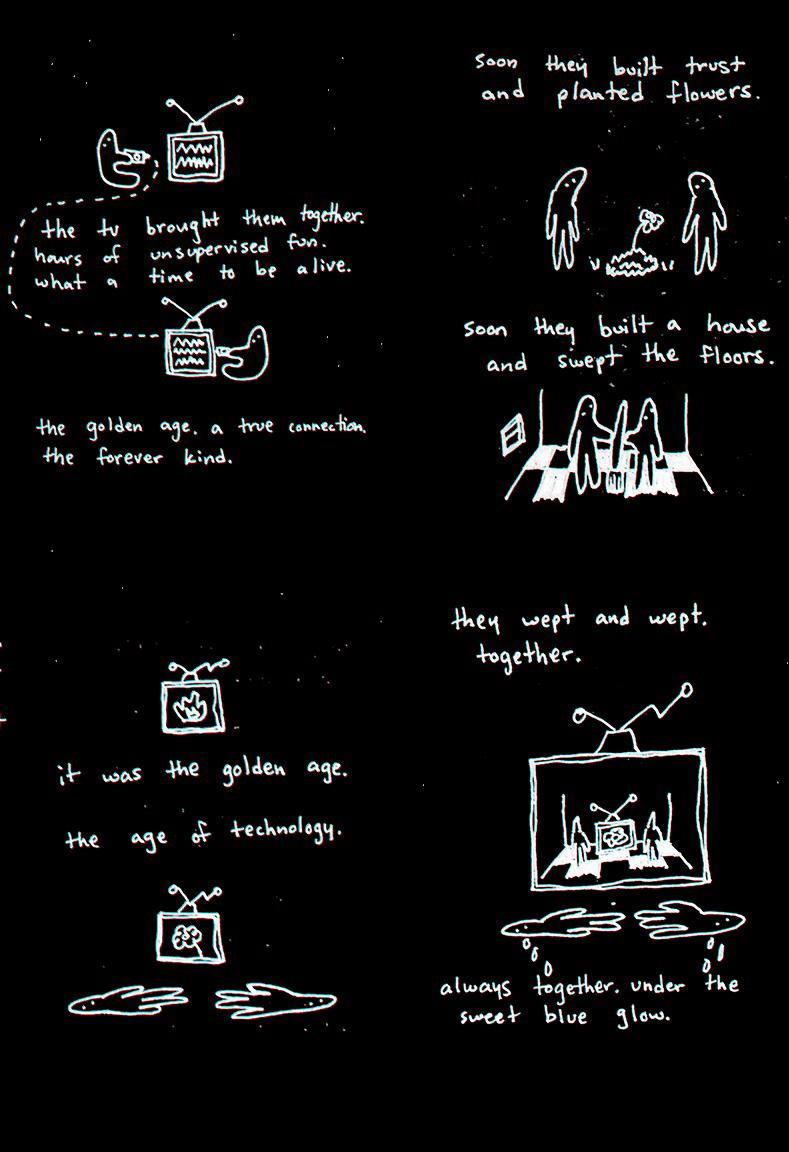 the tv brought them together.
hours of unsupervised fun.
what a time to be alive.
the golden age. a true connection.
the forever kind.
soon they built trust
and planted flowers.
soon they built a house
and swept the floors.
it was the golden age.
the age of technology.
they wept and wept.
together.
always together. under the
sweet blue glow.